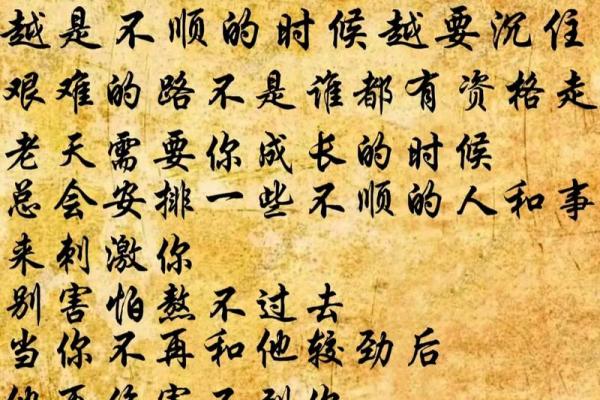 越是不顺的时候越要沉住
艰难的路不是谁都有资格走
老天需要你成长的时候
总会安排一些不顺的人和事
来刺激你
别害怕熬不过去
当你不再和他较劲后
他再伤害不到你